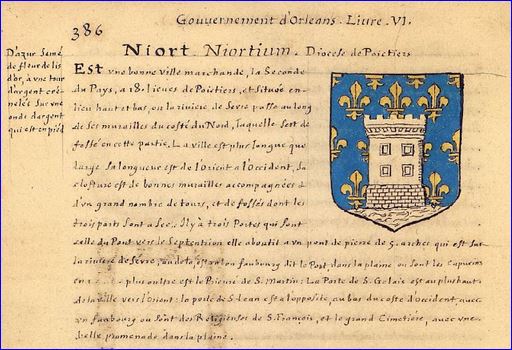 Gouvernement d'Orleans. Liure. VI.
386
Niort. Niortium. Diocese de Poictiers
D'azur Semé
de fleur de lis
d'or, à vne tour
d'argent cré-
nelée Sur vne
onde d'argent
qui est en pied
Est vne bonne ville marchande, la Seconde
du Pays, a 18. lieues de Poictiers, et Située en
lieu haut et bas, ou la riuiere de Sevre passe au long
de Ses murailles du costé du Nord, laquelle Sert de
fossé en cette partie. La ville est plus longue que
large. Sa longueur est de l'Orient a l'Occident, Sa
closture est de bonnes murailles accompagnées
d'vn grand nombre de tours, et de fossés dont les
trois parts Sont a Sec. Il y a trois Portes qui Sont
celle du Pont vers le Septention elle aboutit a vn pont de pierre de 5. arches qui est Sur
la riuiere de Sevre, au dela est vn faubourg dit le Port, dans la plaine ou Sont les Capucins
en plus oultre est le Prieuré de S. Martin: La Porte de S. Gelais est au plus haut
de la ville vers l'Orient: la porte de S. Iean est a l'opposite, au bas du costé d'Occident, auec
vn faubourg ou Sont des Religieuses de S. François, et le grand Cimetiere, auec vne
belle promenade dans la plaine.